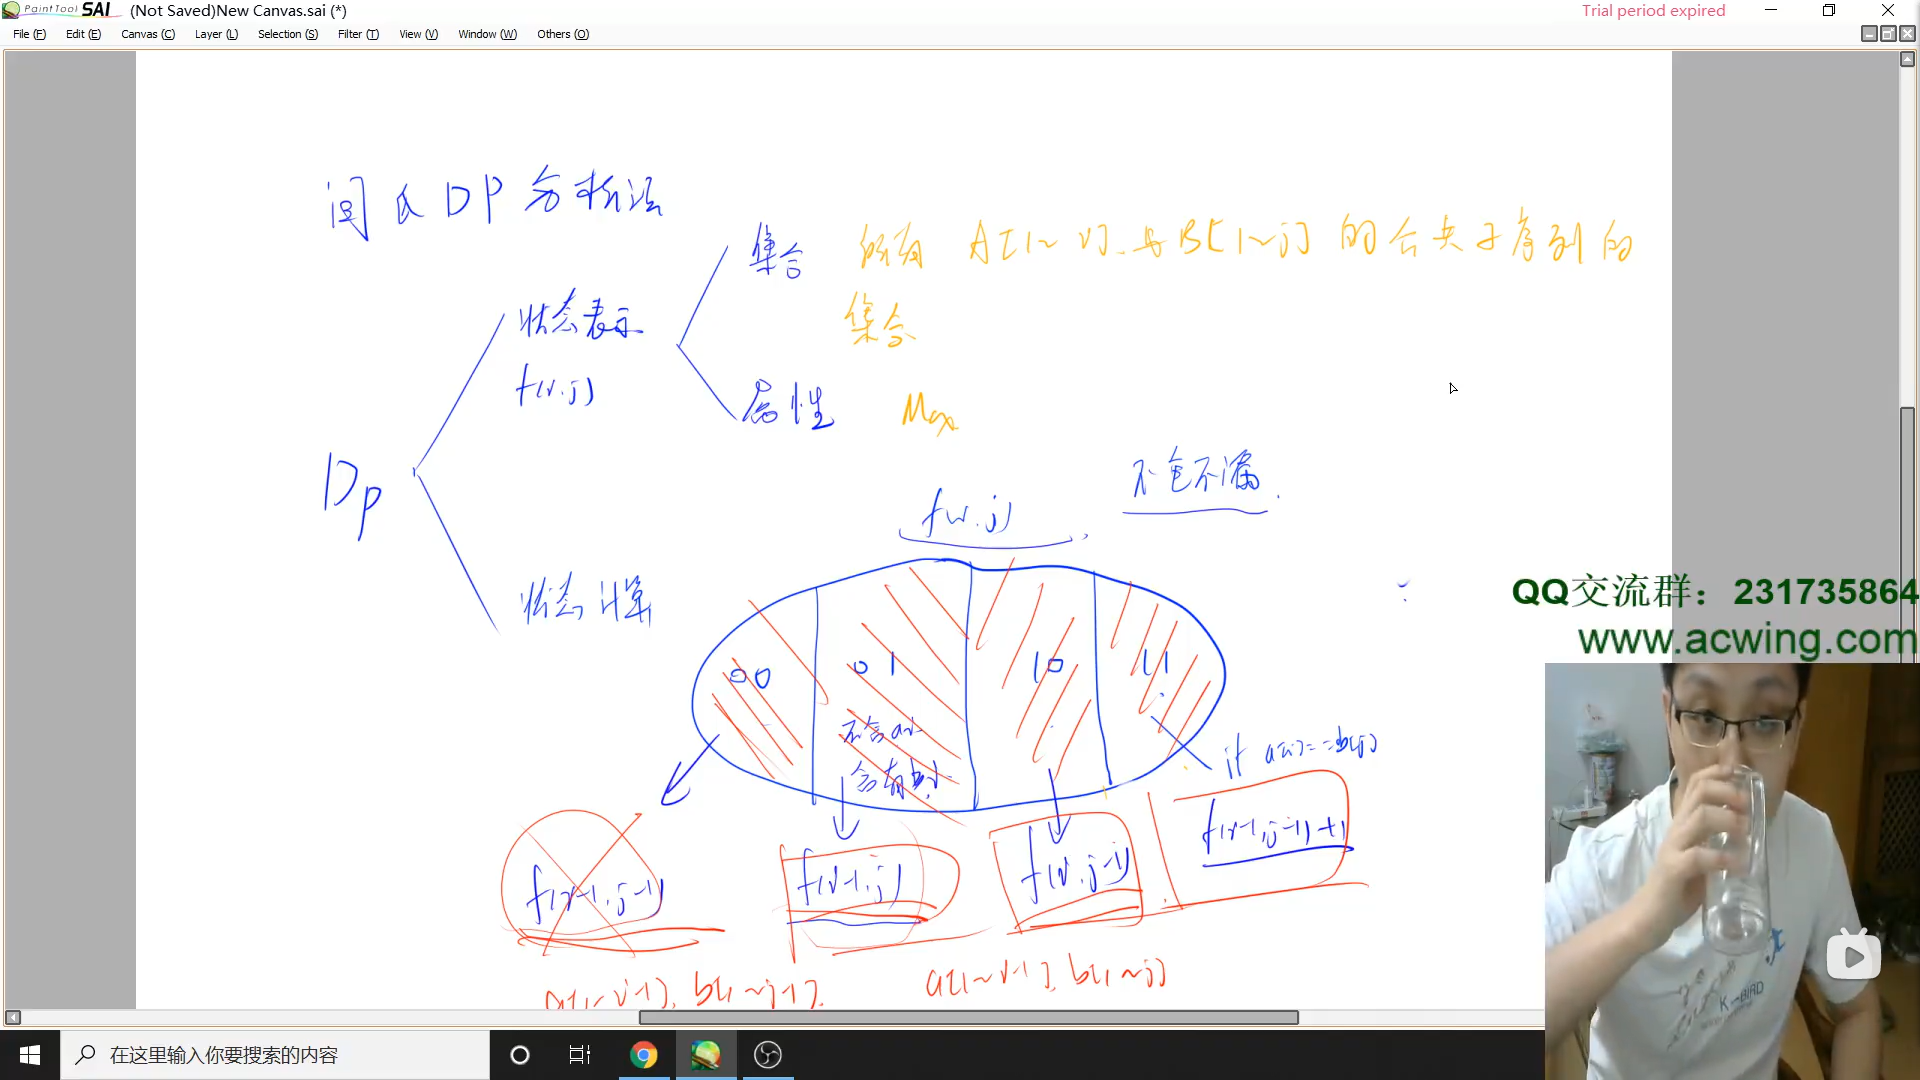 PaintTool SAI (Not Saved)New Canvas.sai (*)
Trial period expired
File (F) Edit (E) Canvas (C) Layer (L) Selection (S) Filter (T) View (V) Window (W) Others (O)
闫氏DP分析法
集合 所有 A[1~i] 与B[1~j] 的公共子序列的
集合
状态表示
f(i,j)
属性 Max
DP
不重不漏
f(i,j)
状态计算
00 01 10 11
不含ai
含有bj
if a[i]==b[j]
f(i-1,j-1)
f(i-1,j)
f(i,j-1)
f(i-1,j-1)+1
a[1~i-1], b[1~j-1].
a[1~i-1], b[1~j]
QQ交流群：231735864
www.acwing.com
K-BIRD
在这里输入你要搜索的内容